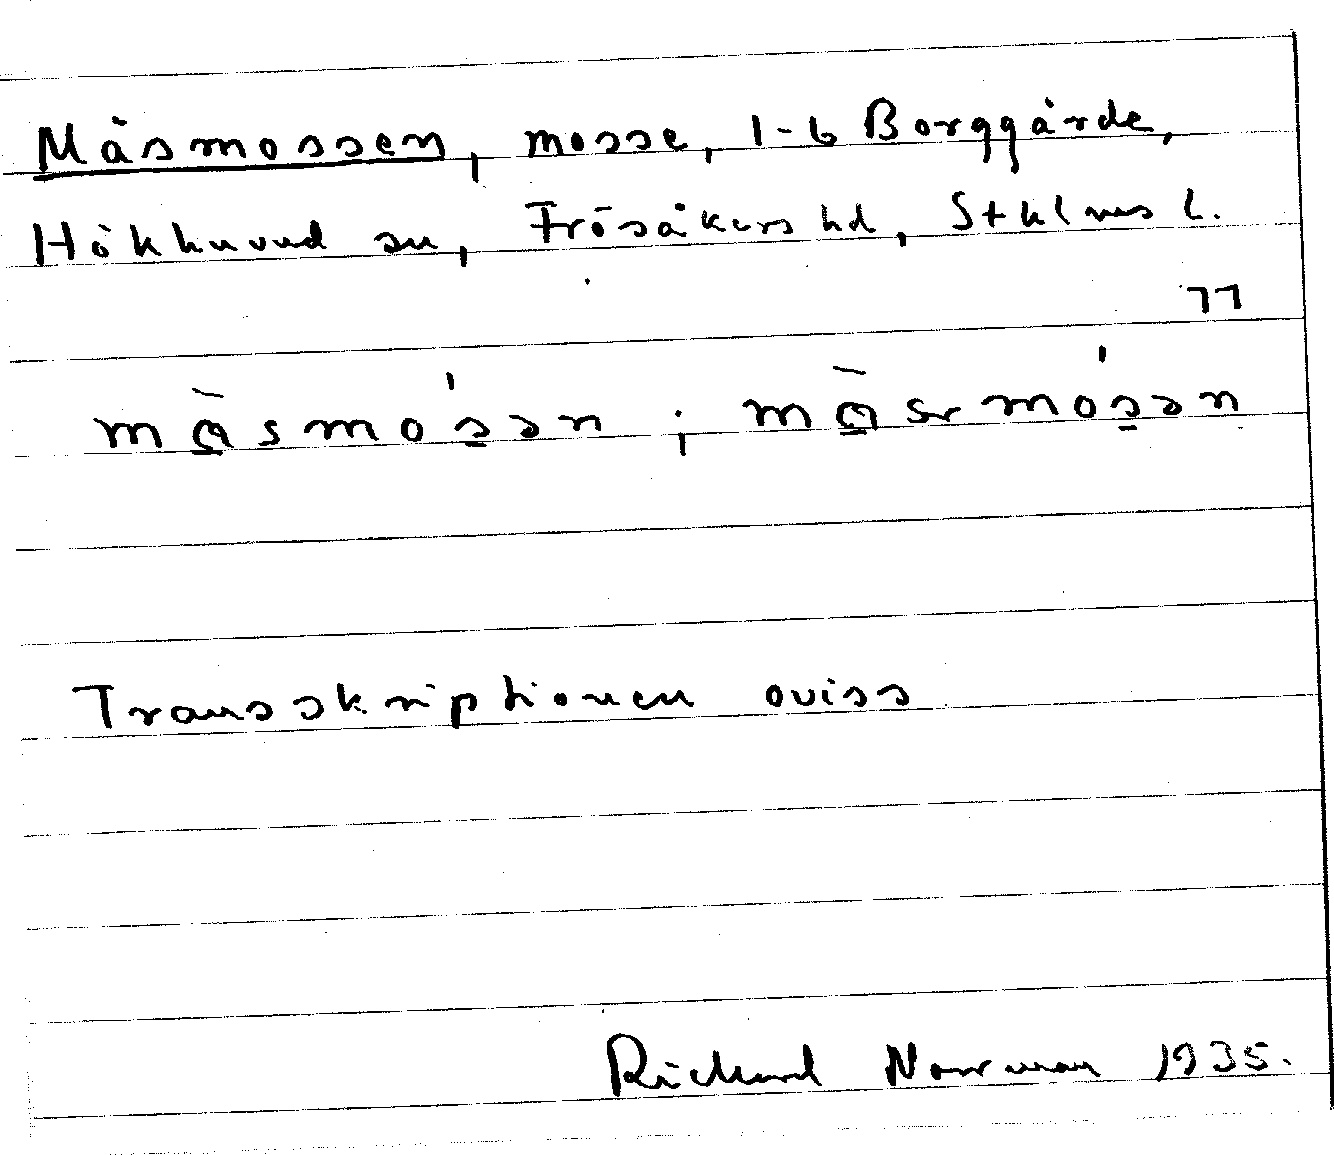 Måsmossen, mosse, 1-6 Borggårde,
Hökhuvud sn, Frösåkers hd, Sthlms l.
77
Transskriptionen oviss
Richard Norrman 1935.